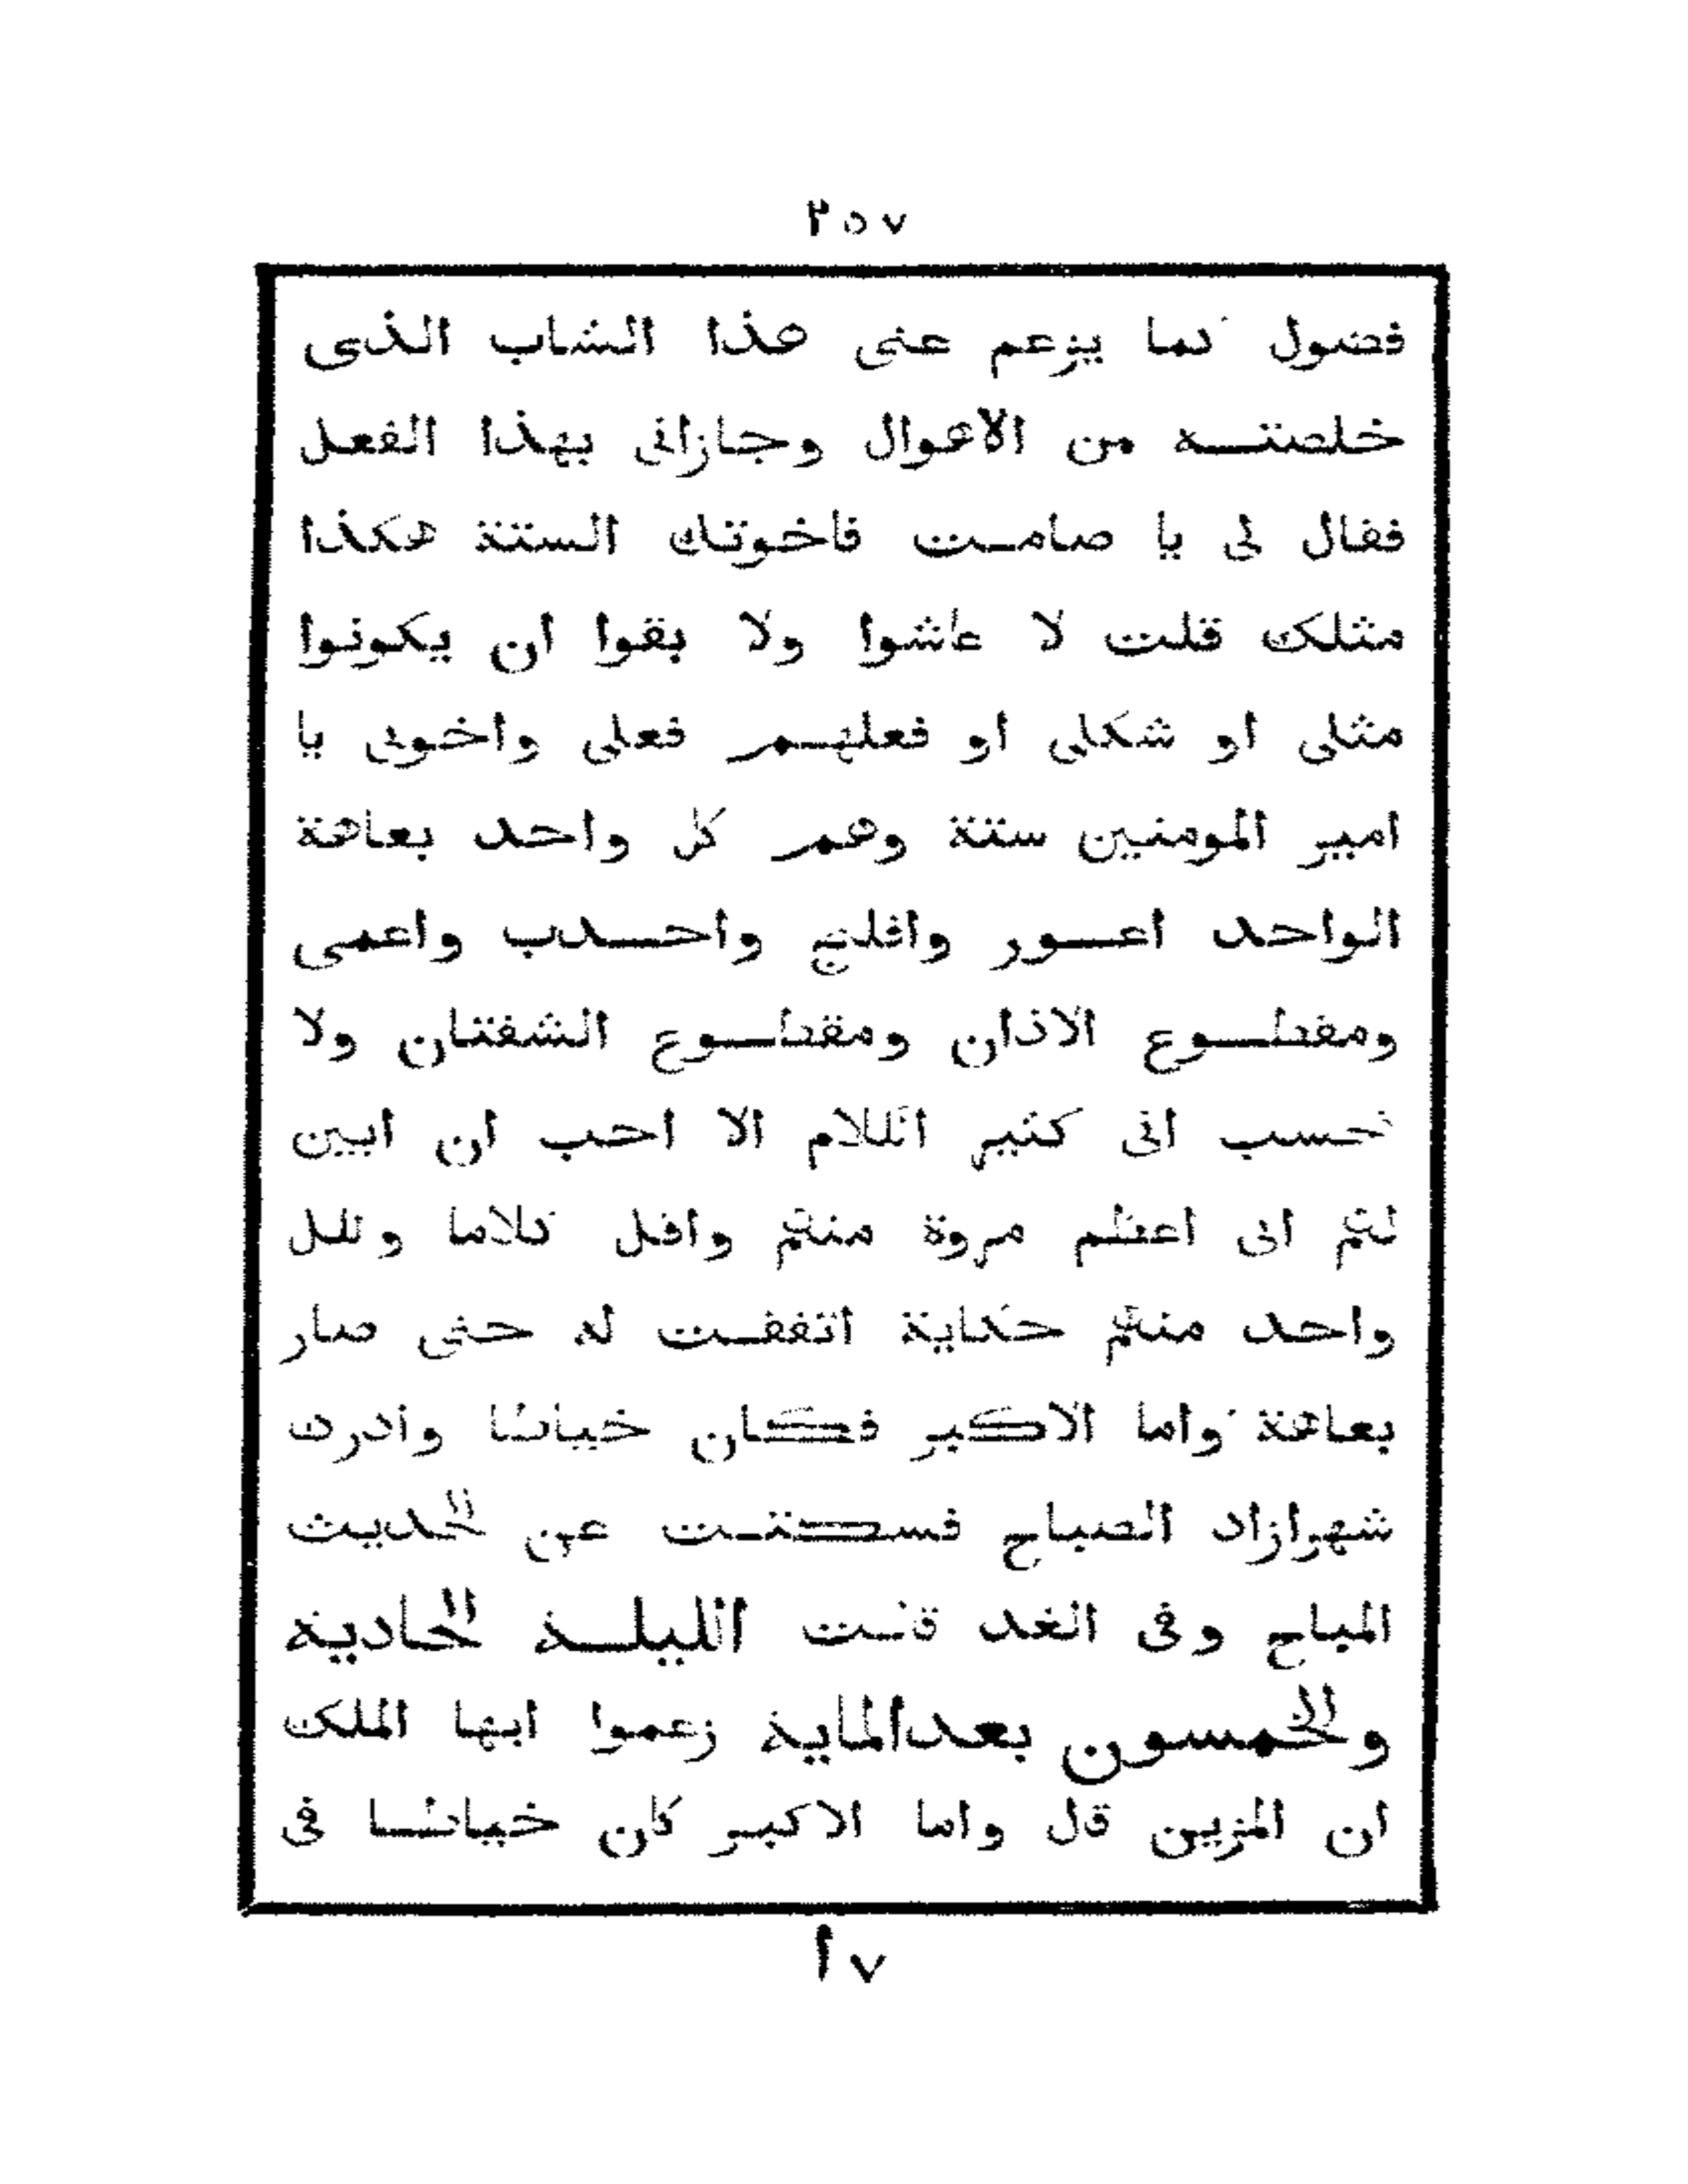 ٢٥٧
فضول كما يزعم عنى هذا الشاب الذى
خلصته من الاهوال وجازانى بهذا الفعل
فقال لى يا صامت فاخوتك الستة هكذا
مثلك قلت لا عاشوا ولا بقوا ان يكونوا
مثلى او شكلى او فعلهم فعلى واخوتى يا
امير المومنين ستة وهم كل واحد بعاهة
الواحد اعور وافلج واحدب واعمى
ومقطوع الاذان ومقطوع الشفتان ولا
تحسب انى كثير الكلام الا احب ان ابين
لكم انى اعظم مروة منهم واقل كلاما ولكل
واحد منهم حكاية اتفقت له حتى صار
بعاهة واما الاكبر فكان خياطا وادرك
شهرازاد الصباح فسكتت عن الحديث
المباح وفى الغد قلت الليلة الحادية
والخمسون بعدالماية زعموا ايها الملك
ان المزين قال واما الاكبر كان خياطا فى
١٧